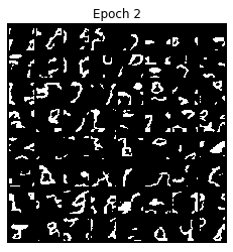 Epoch 2